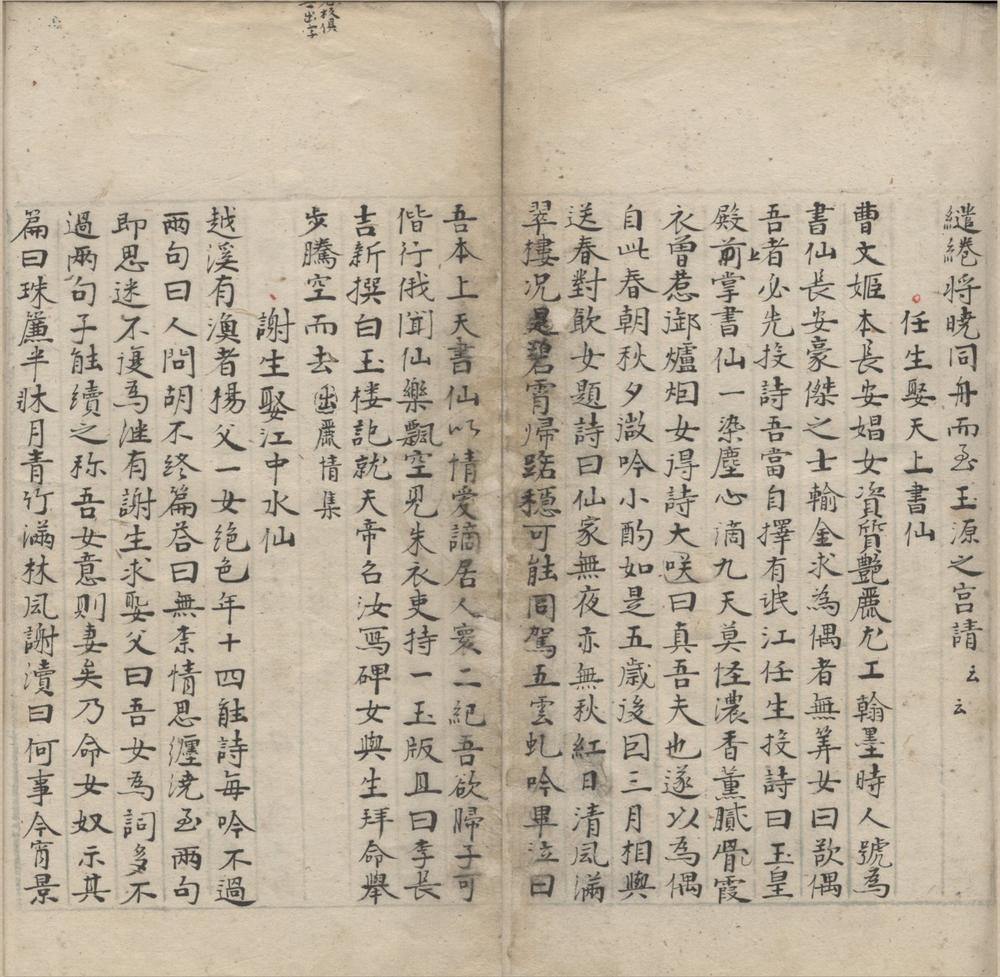 繾綣將曉同舟而至玉源之宮請云云
任生娶天上書仙
曹文姬本長安娼女資質艷麗尤工翰墨時人號為
書仙長安豪傑之士輸金求為偶者無筭女曰欲偶
吾者必先投詩吾當自擇有岷江任生投詩曰玉皇
殿前掌書仙一染塵心謫九天莫怪濃香薰膩骨霞
衣曾惹御爐烟女得詩大咲曰真吾夫也遂以為偶
自此春朝秋夕微吟小酌如是五歲後因三月相與
送春對飲女題詩曰仙家無夜亦無秋紅日清風滿
翠樓况是碧霄歸路穩可能同駕五雲虬吟畢泣曰
吾本上天書仙以情愛謫居人寰二紀吾欲歸子可
偕行俄聞仙樂飄空見朱衣吏持一玉版且曰李長
吉新撰白玉楼記就天帝召汝寫碑女與生拜命舉
步騰空而去出麗情集
謝生娶江中水仙
越溪有漁者楊父一女絕色年十四能詩每吟不過
兩句曰人問胡不終篇答曰無柰情思纏澆至兩句
即思迷不復為継有謝生求娶父曰吾女為詞多不
過兩句子能續之称吾女意則妻矣乃命女奴示其
篇曰珠簾半牀月青竹滿林風謝瀆曰何事今宵景